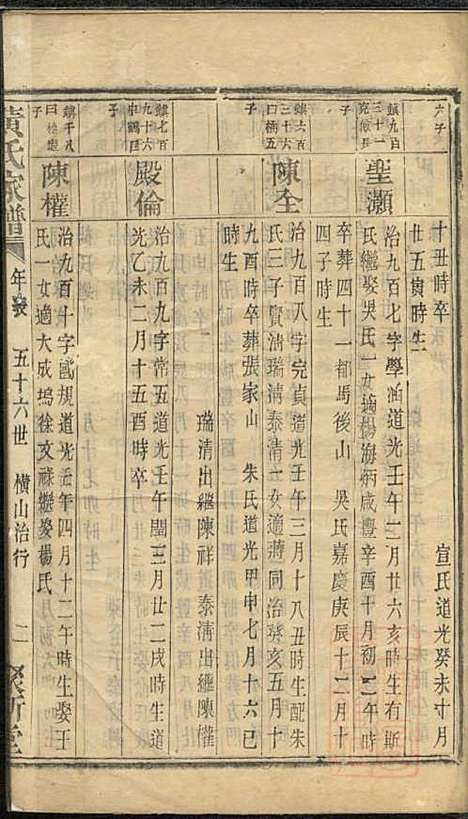 六子
十丑時卒　宣氏道光癸未十月
廿五寅時生
鎮九百
三十一
克儉長
子
聖灝
治九百七字學涵道光壬午二月廿六亥時生有斯
氏繼娶吳氏一女適楊海炳咸豐辛酉十月初二午時
卒葬四十一都馬後山　吳氏嘉慶庚辰十二月十
四子時生
鎮六百
三十六
曰楠五
子
陳全
治九百八字完貞道光壬午三月十八丑時生配朱
氏三子寶清瑞清泰清一女適蔣同治癸亥五月十
九酉時卒葬張家山　朱氏道光甲申七月十六巳
時生
瑞清出繼陳祥　泰清出繼陳權
鎮七百
九十六
殿倫
治九百九字常五道光壬午閏三月廿二戌時生道
光乙未二月十五酉時卒
鎮千八
子
陳權
治九百十字國規道光壬午四月十二午時生娶王
氏一女適大成塢徐文祿繼娶楊氏
黃氏家譜
年表　五十六世　橫山治行
二